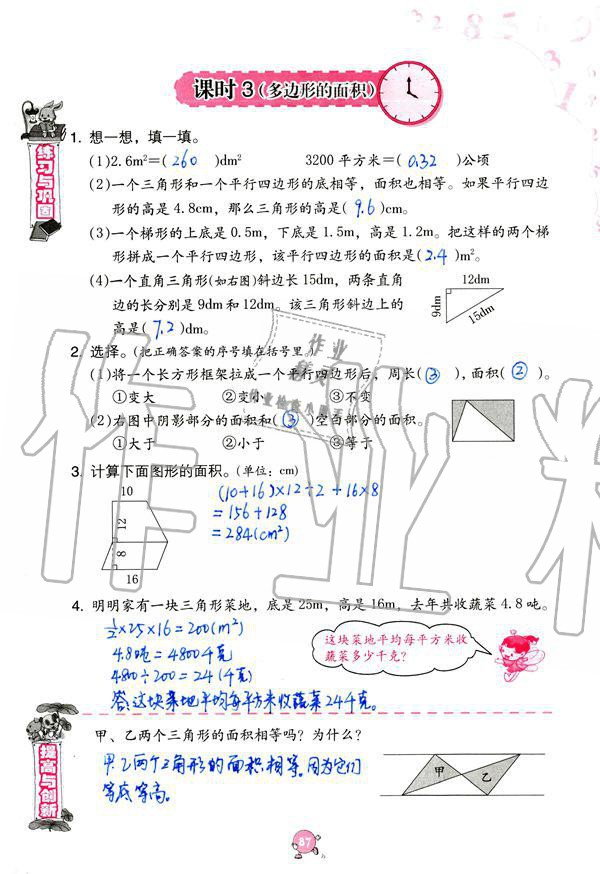 课时3(多边形的面积)
练习与巩固
1. 想一想,填一填。
(1)2.6m²=( 260 )dm²  3200平方米=( 0.32 )公顷
(2)一个三角形和一个平行四边形的底相等,面积也相等。如果平行四边
形的高是4.8cm,那么三角形的高是( 9.6 )cm。
(3)一个梯形的上底是0.5m,下底是1.5m,高是1.2m。把这样的两个梯
形拼成一个平行四边形,该平行四边形的面积是( 2.4 )m²。
(4)一个直角三角形(如右图)斜边长15dm,两条直角
边的长分别是9dm和12dm。该三角形斜边上的
高是( 7.2 )dm。
12dm
9dm
15dm
2. 选择。(把正确答案的序号填在括号里。)
(1)将一个长方形框架拉成一个平行四边形后,周长( ③ ),面积( ② )。
①变大  ②变小  ③不变
(2)右图中阴影部分的面积和( ③ )空白部分的面积。
①大于  ②小于  ③等于
3. 计算下面图形的面积。(单位:cm)
10
12
8
16
(10+16)×12÷2+16×8
=156+128
=284(cm²)
4. 明明家有一块三角形菜地,底是25m,高是16m。去年共收蔬菜4.8吨。
½×25×16=200(m²)
4.8吨=4800千克
4800÷200=24(千克)
答:这块菜地平均每平方米收蔬菜24千克。
这块菜地平均每平方米收
蔬菜多少千克?
提高与创新
甲、乙两个三角形的面积相等吗?为什么?
甲、乙两个三角形的面积相等。因为它们
等底等高。
甲
乙
87